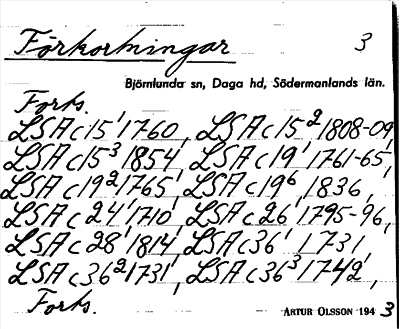 Förkortningar 3
Björnlunda sn, Daga hd, Södermanlands län.
Forts.
LSA c15¹ 1760, LSA c15² 1808-09,
LSA c15³ 1854, LSA c19¹ 1761-65,
LSA c19² 1765, LSA c19⁶, 1836,
LSA c24¹ 1710, LSA c26¹ 1795-96,
LSA c28¹ 1814, LSA c36¹ 1731,
LSA c36² 1731, LSA c36³ 1742,
Forts.
ARTUR OLSSON 194 3